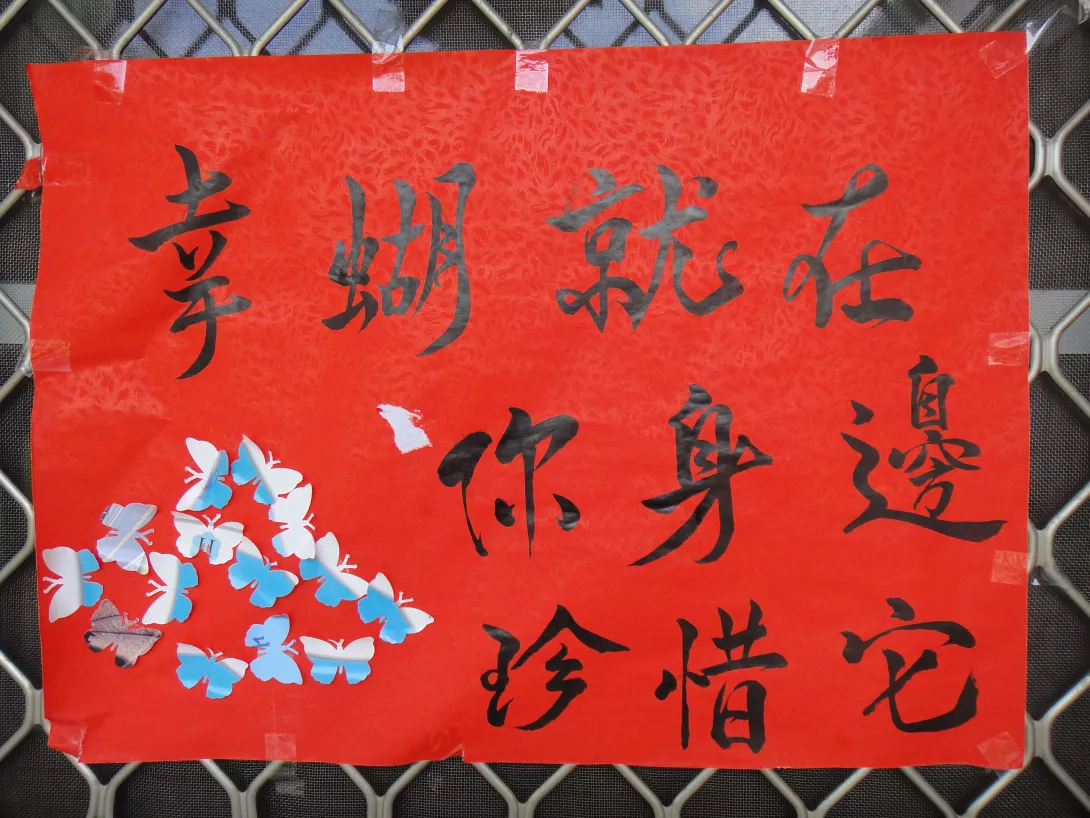 幸蝴就在
你身邊
珍惜它